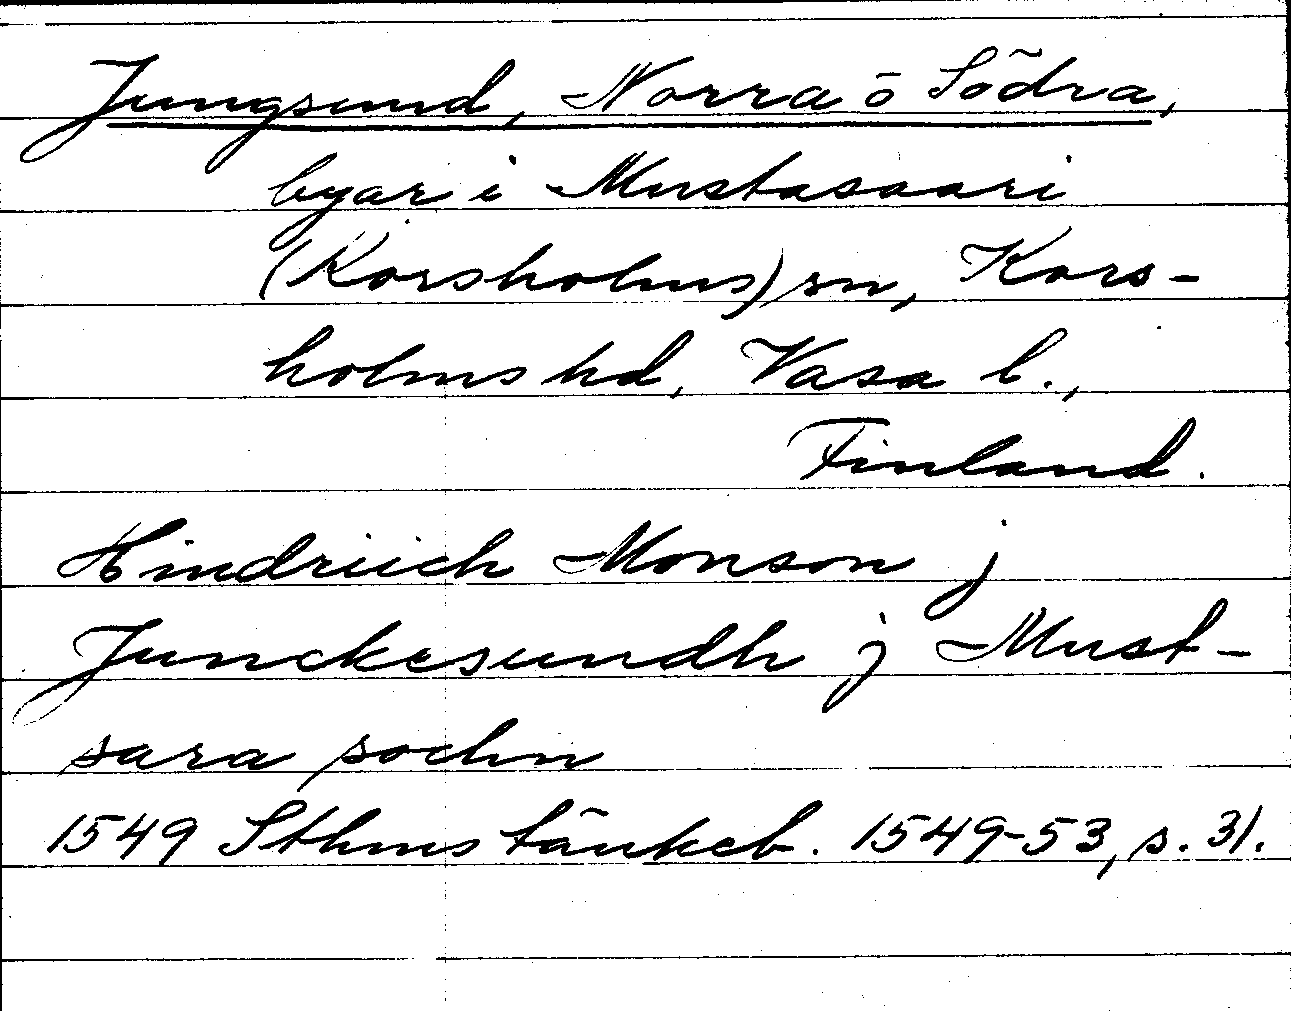 Jungsund, Norra o Södra,
byar i Mustasaari
(Korsholms) sn, Kors-
holms hd, Vasa l.,
Finland.
Hindriich Monson j
Junckesundh j Must-
sara sochn
1549 Sthms tänkeb. 1549-53, s. 31.